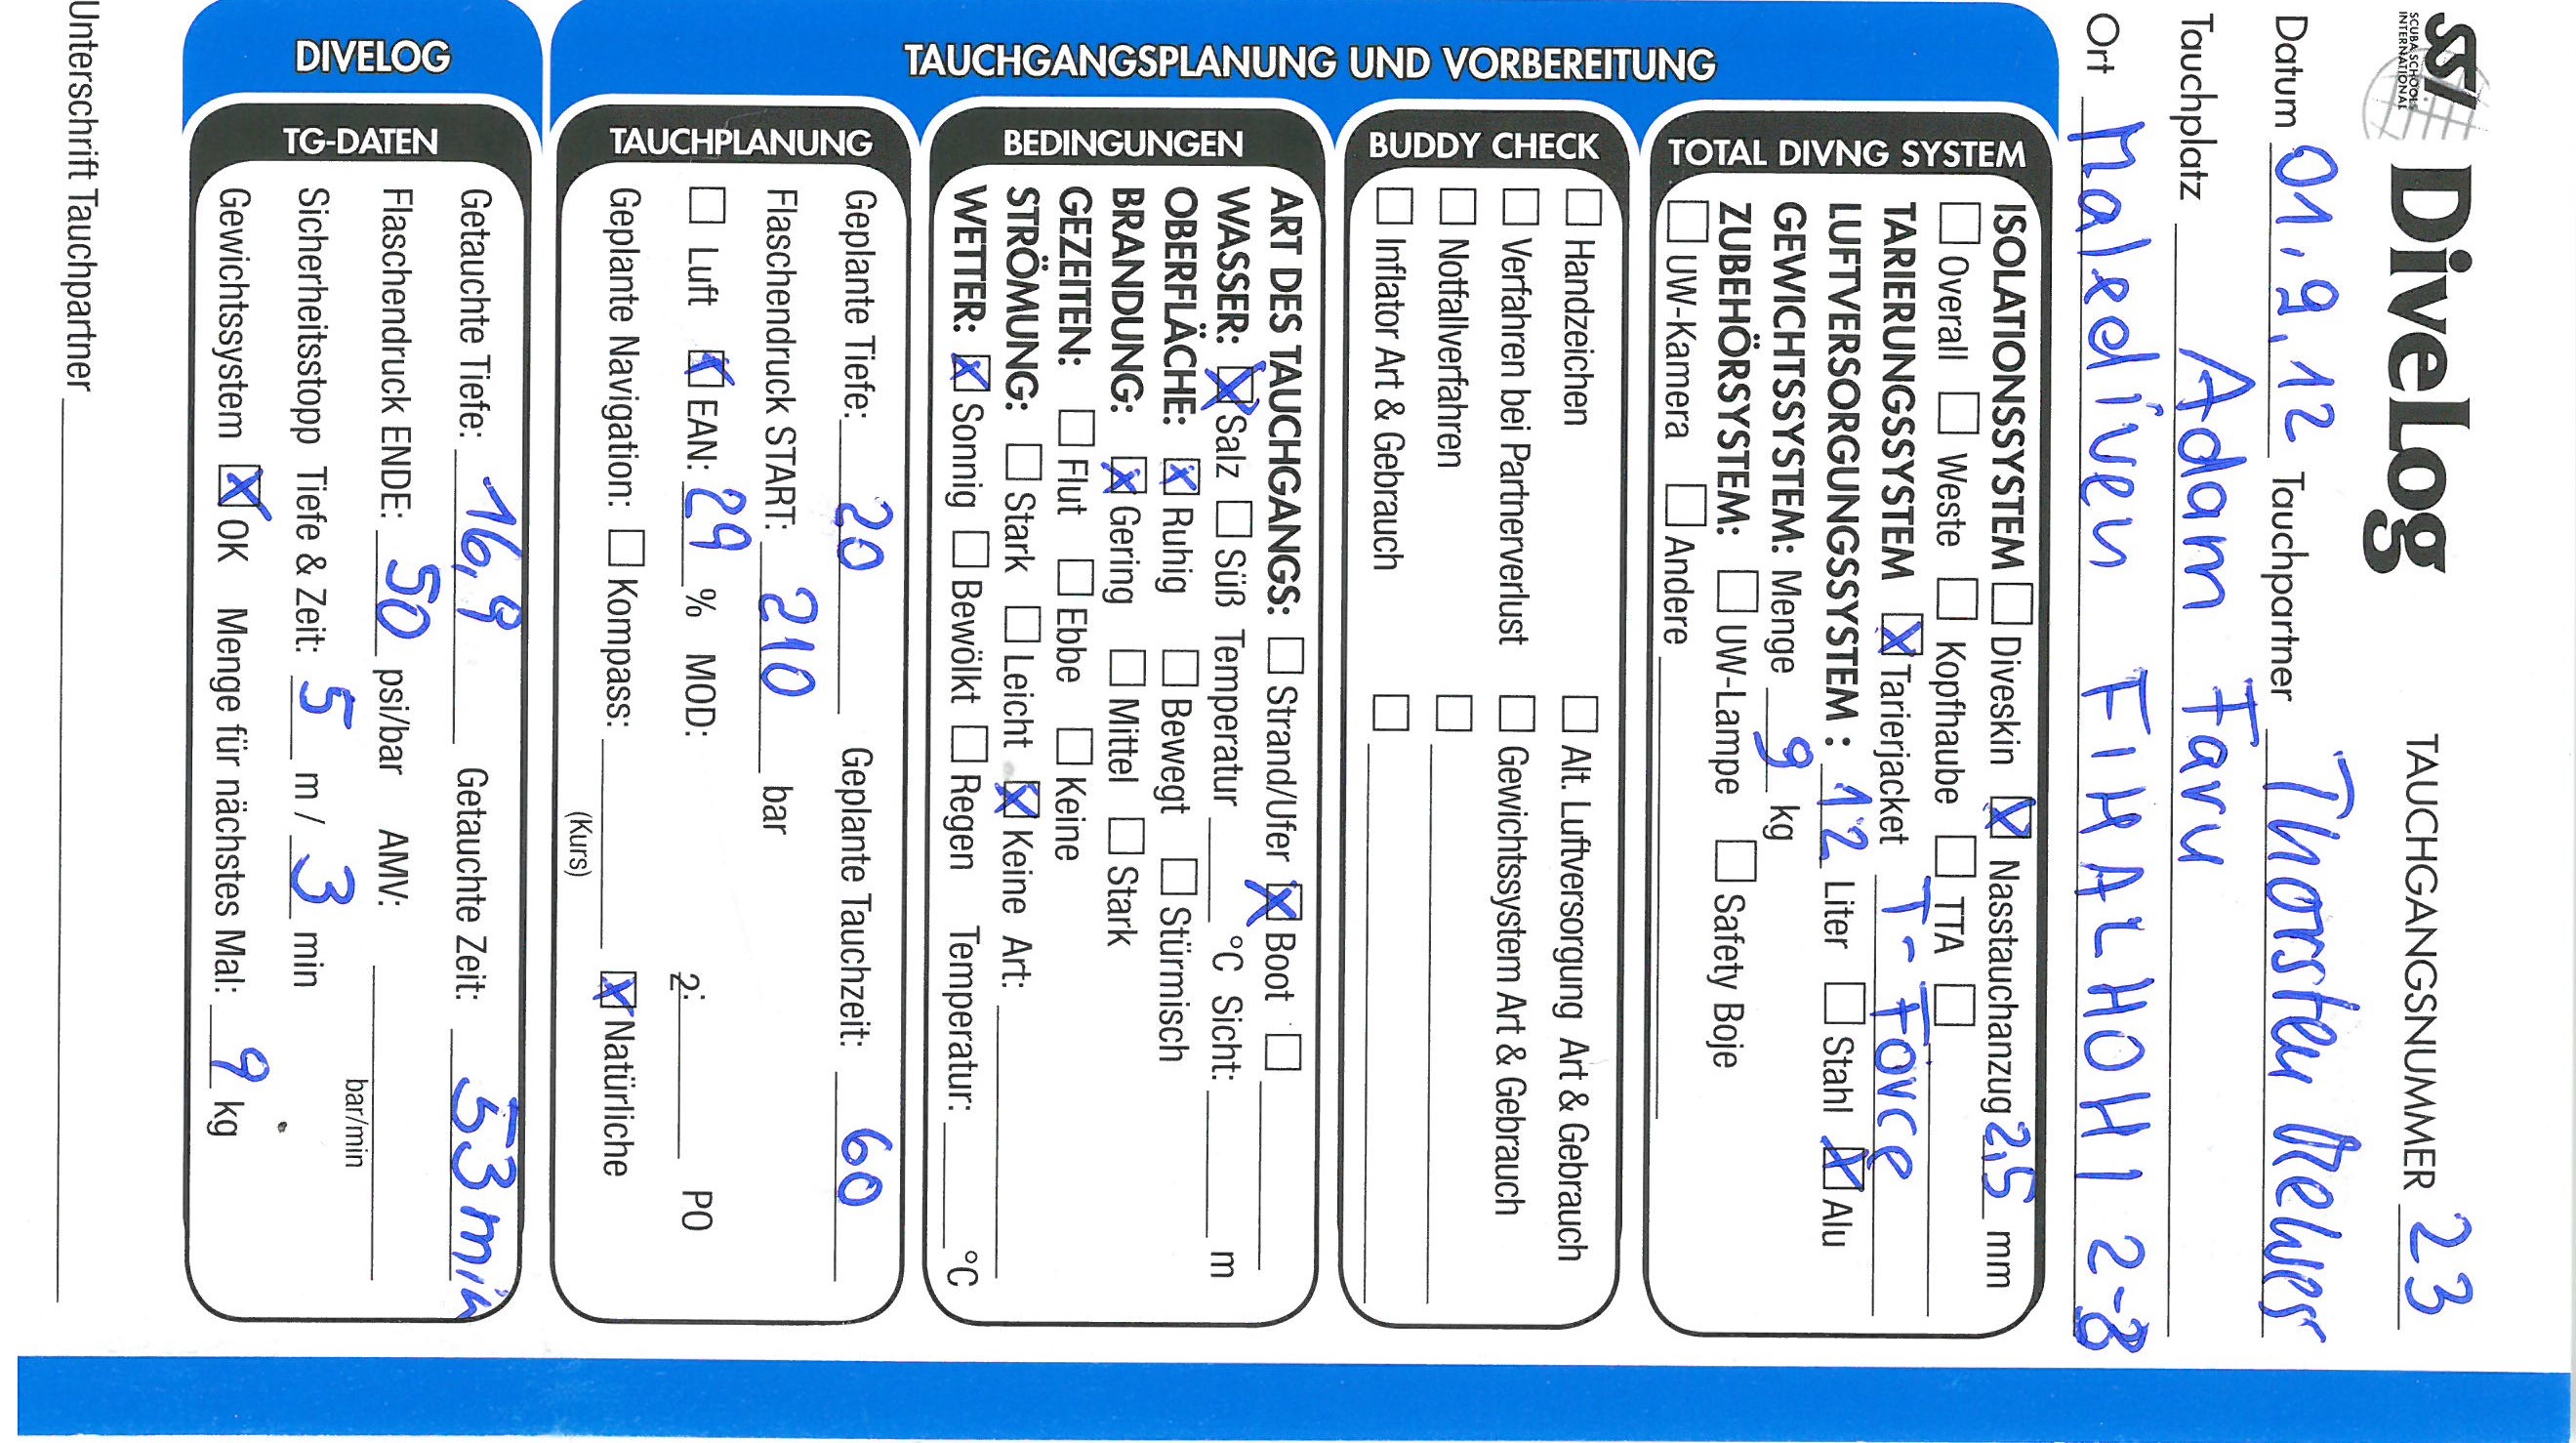 SSI
SCUBA SCHOOLS
INTERNATIONAL
DiveLog
TAUCHGANGSNUMMER 23
Datum 01.9.12 Tauchpartner Thorsten
Tauchplatz Adam Faru
Ort Malediven FIHALHOHI 2-8
TAUCHGANGSPLANUNG UND VORBEREITUNG
TOTAL DIVNG SYSTEM
ISOLATIONSSYSTEM ☐ Diveskin ☒ Nasstauchanzug 2,5 mm
☐ Overall ☐ Weste ☐ Kopfhaube ☐ TTA ☐
TARIERUNGSSYSTEM ☒ Tarierjacket T-Force
LUFTVERSORGUNGSSYSTEM : 12 Liter ☐ Stahl ☒ Alu
GEWICHTSSYSTEM: Menge 9 kg
ZUBEHÖRSYSTEM: ☐ UW-Lampe ☐ Safety Boje
☐ UW-Kamera ☐ Andere
BUDDY CHECK
☐ Handzeichen ☐ Alt. Luftversorgung Art & Gebrauch
☐ Verfahren bei Partnerverlust ☐ Gewichtssystem Art & Gebrauch
☐ Notfallverfahren ☐
☐ Inflator Art & Gebrauch ☐
BEDINGUNGEN
ART DES TAUCHGANGS: ☐ Strand/Ufer ☒ Boot ☐
WASSER: ☒ Salz ☐ Süß Temperatur °C Sicht: m
OBERFLÄCHE: ☒ Ruhig ☐ Bewegt ☐ Stürmisch
BRANDUNG: ☒ Gering ☐ Mittel ☐ Stark
GEZEITEN: ☐ Flut ☐ Ebbe ☐ Keine
STRÖMUNG: ☐ Stark ☐ Leicht ☒ Keine Art:
WETTER: ☒ Sonnig ☐ Bewölkt ☐ Regen Temperatur: °C
TAUCHPLANUNG
Geplante Tiefe: 20 Geplante Tauchzeit: 60
Flaschendruck START: 210 bar
☐ Luft ☒ EAN: 29 % MOD: 2: PO
Geplante Navigation: ☐ Kompass: ☒ Natürliche
(Kurs)
DIVELOG
TG-DATEN
Getauchte Tiefe: 16,9 Getauchte Zeit: 53 min
Flaschendruck ENDE: 50 psi/bar AMV: bar/min
Sicherheitsstopp Tiefe & Zeit: 5 m / 3 min
Gewichtssystem ☒ OK Menge für nächstes Mal: 9 kg
Unterschrift Tauchpartner